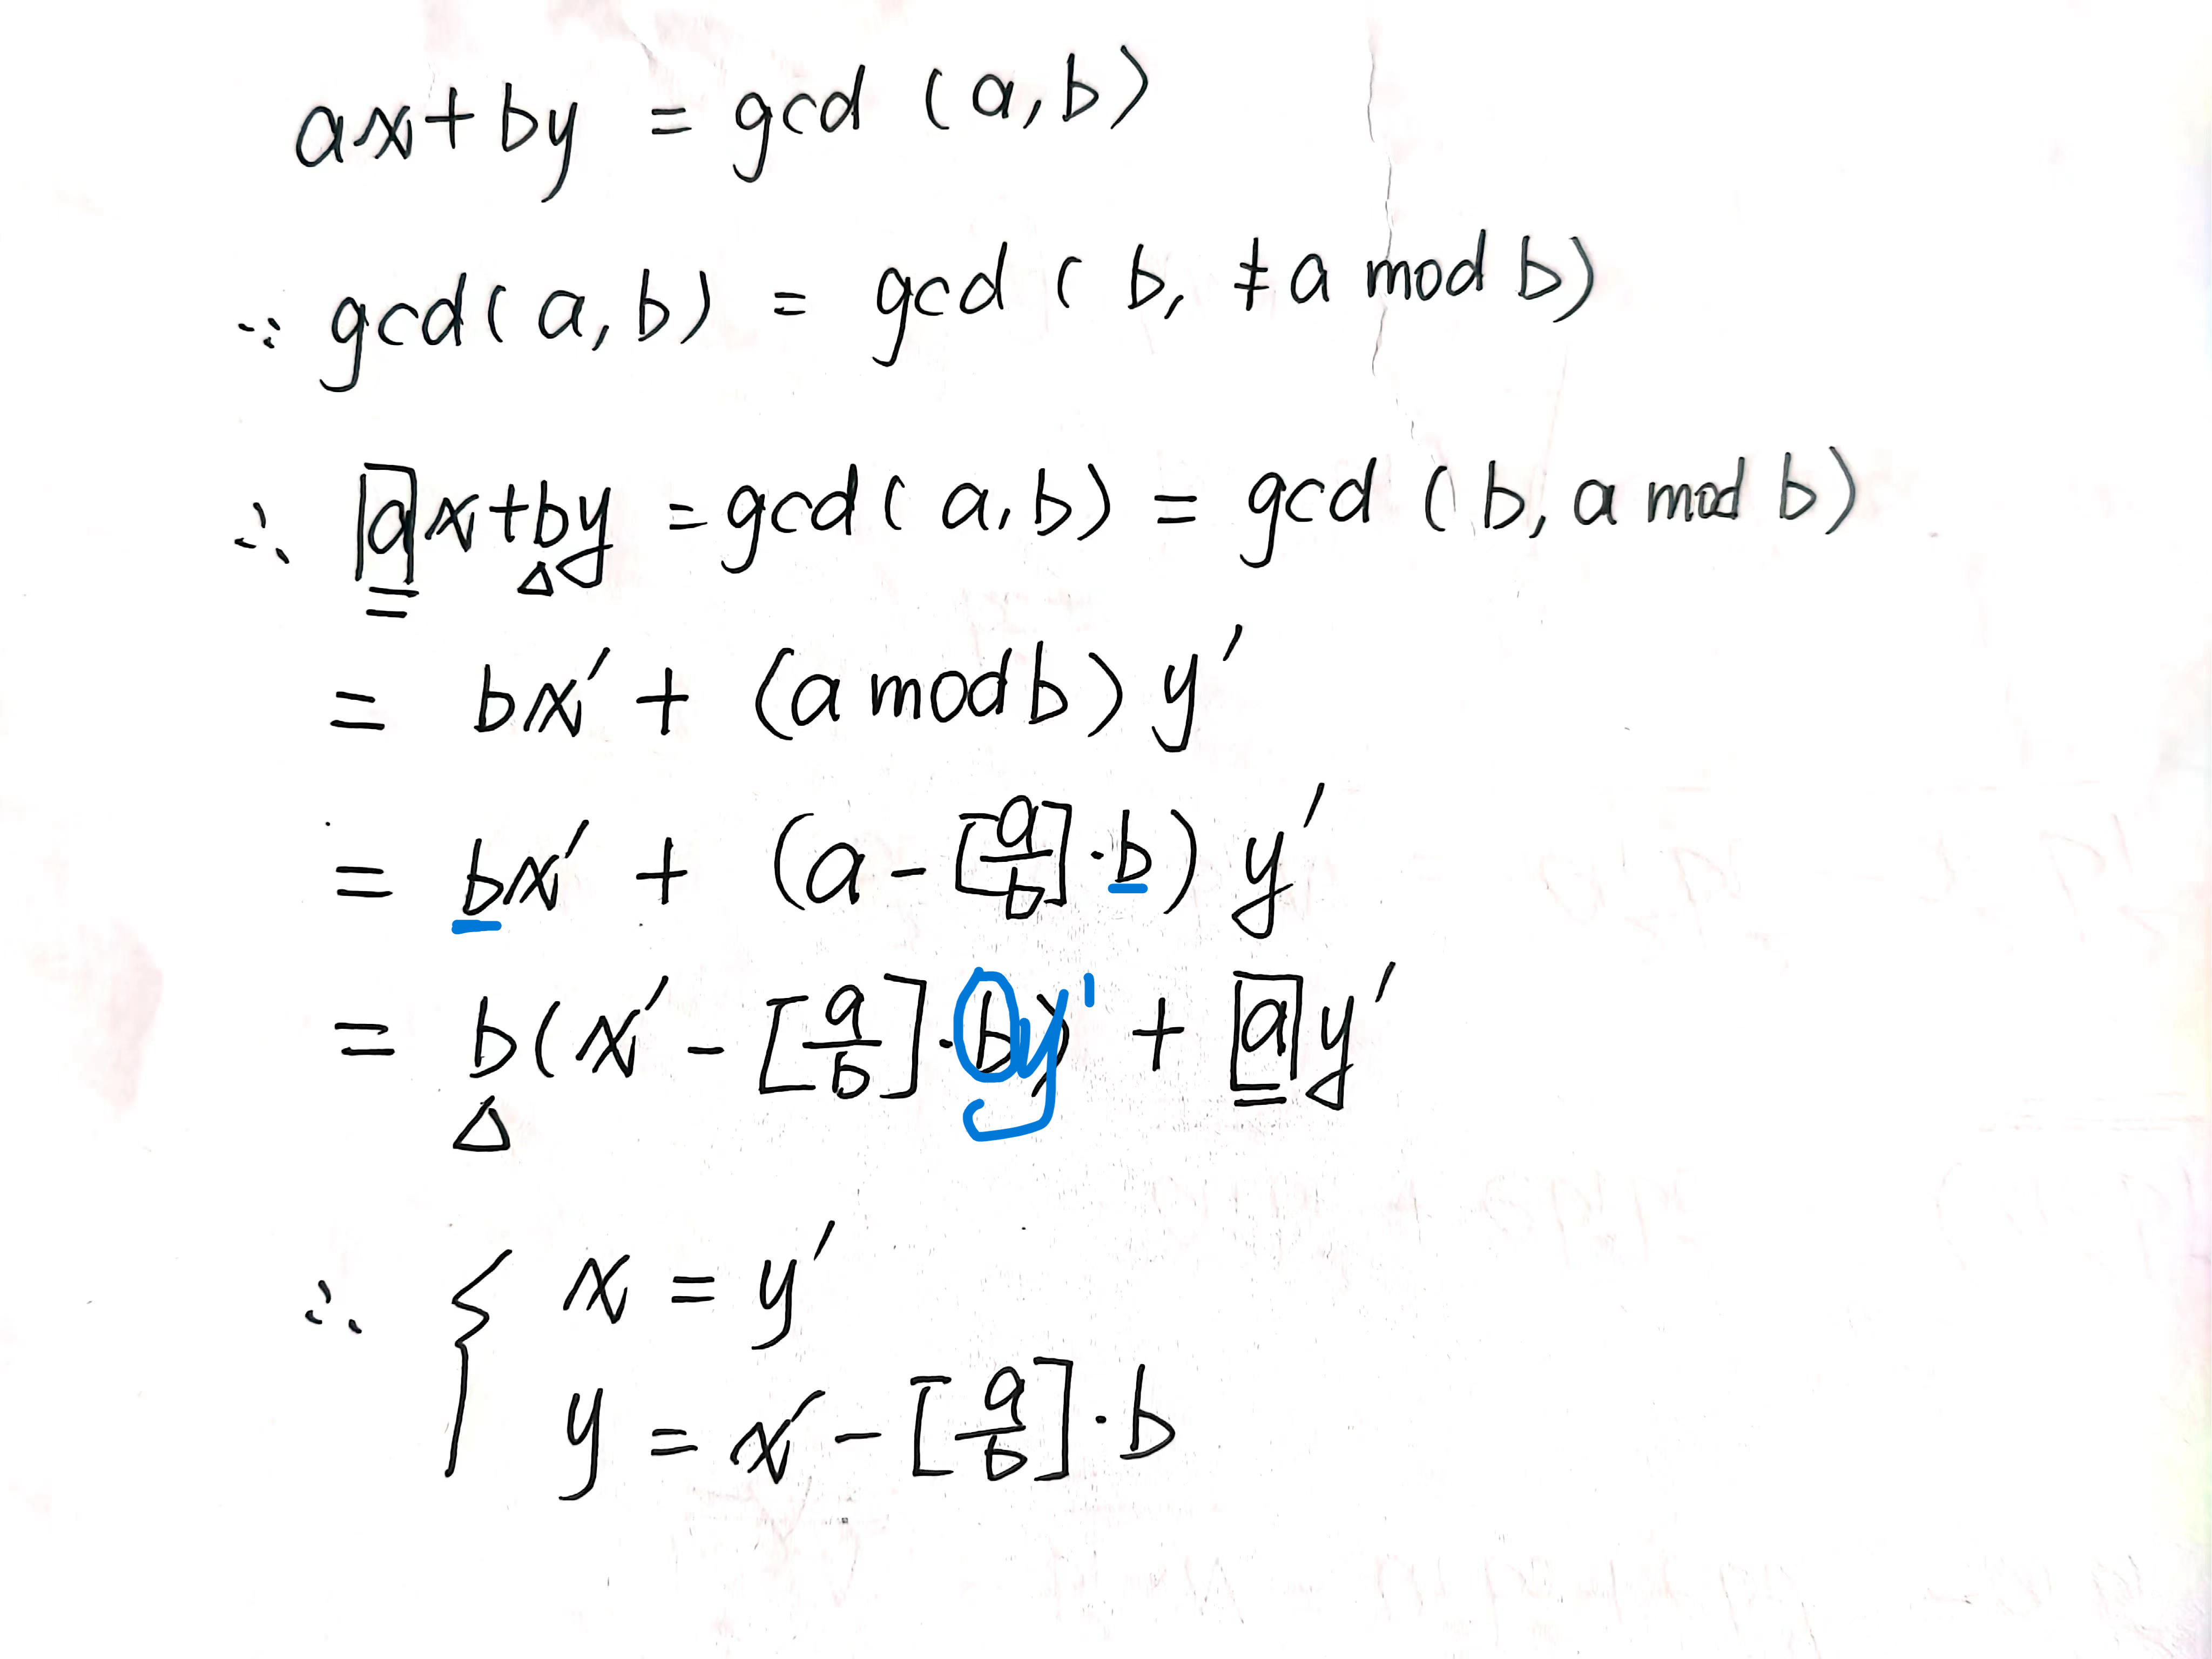 ax+by = gcd (a,b)
∵ gcd(a,b) = gcd ( b, a mod b)
∴ ax+by = gcd(a,b) = gcd (b, a mod b)
= bx′ + (a mod b) y′
= bx′ + (a - [a/b]·b) y′
= b(x′ - [a/b]·by′) + ay′
∴ { x = y′
y = x′ - [a/b]·b